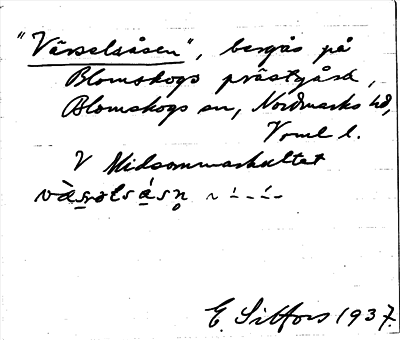 "Värselsåsen", bergås på
Blomskogs prästgård,
Blomskogs sn, Nordmarks hd,
Vrml l.
V Midsommarkullet
E. Sillfors 1937.